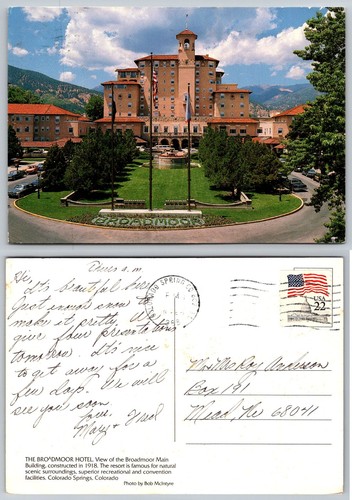 BROADMOOR
Tues a.m
Hi,
It's beautiful here
Just enough snow to
make it pretty. We
give four presentations
tomorrow. It's nice
to get away for a
few days. We will
see you soon
Love,
Mary &
COLORADO SPRINGS
USA
22
Mr & Mrs Roy Anderson
Box 191
Mead, Ne 68041
THE BROADMOOR HOTEL, View of the Broadmoor Main
Building, constructed in 1918. The resort is famous for natural
scenic surroundings, superior recreational and convention
facilities. Colorado Springs, Colorado
Photo by Bob McIntyre